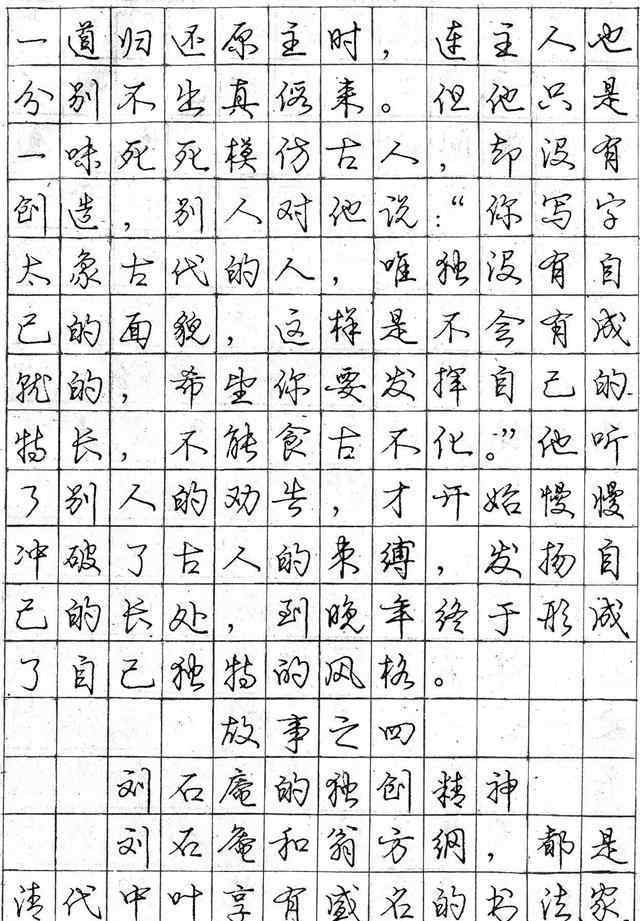 一道归还原主时，连主人也
分别不出真假来。但他只是
一味死死模仿古人，却没有
创造，别人对他说：“你写字
太象古代的人，唯独没有自
己的面貌，这样是不会有成
就的，希望你要发挥自己的
特长，不能食古不化。”他听
了别人的劝告，才开始慢慢
冲破了古人的束缚，发扬自
己的长处，到晚年终于形成
了自己独特的风格。
故事之四
刘石庵的独创精神
刘石庵和翁方纲，都是
清代中叶享有盛名的书法家